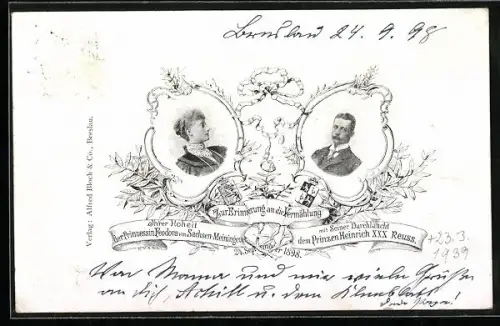 Breslau 24. 9. 98
Verlag: Alfred Bloch & Co., Breslau.
Zur Erinnerung an die Vermählung
Ihrer Hoheit
der Prinzessin Feodora von Sachsen-Meiningen
mit Seiner Durchlaucht
dem Prinzen Heinrich XXX Reuss.
24. September 1898.
+23.3.
1939
Von Mama und mir viele Grüße
an Dich, u. dem